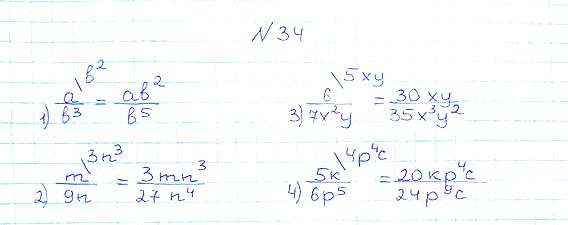 N 34
1) a/b³ \b² = ab²/b⁵
3) 6/7x²y \5xy = 30xy/35x³y²
2) m/9n \3n³ = 3mn³/27n⁴
4) 5k/6p⁵ \4p⁴c = 20kp⁴c/24p⁹c